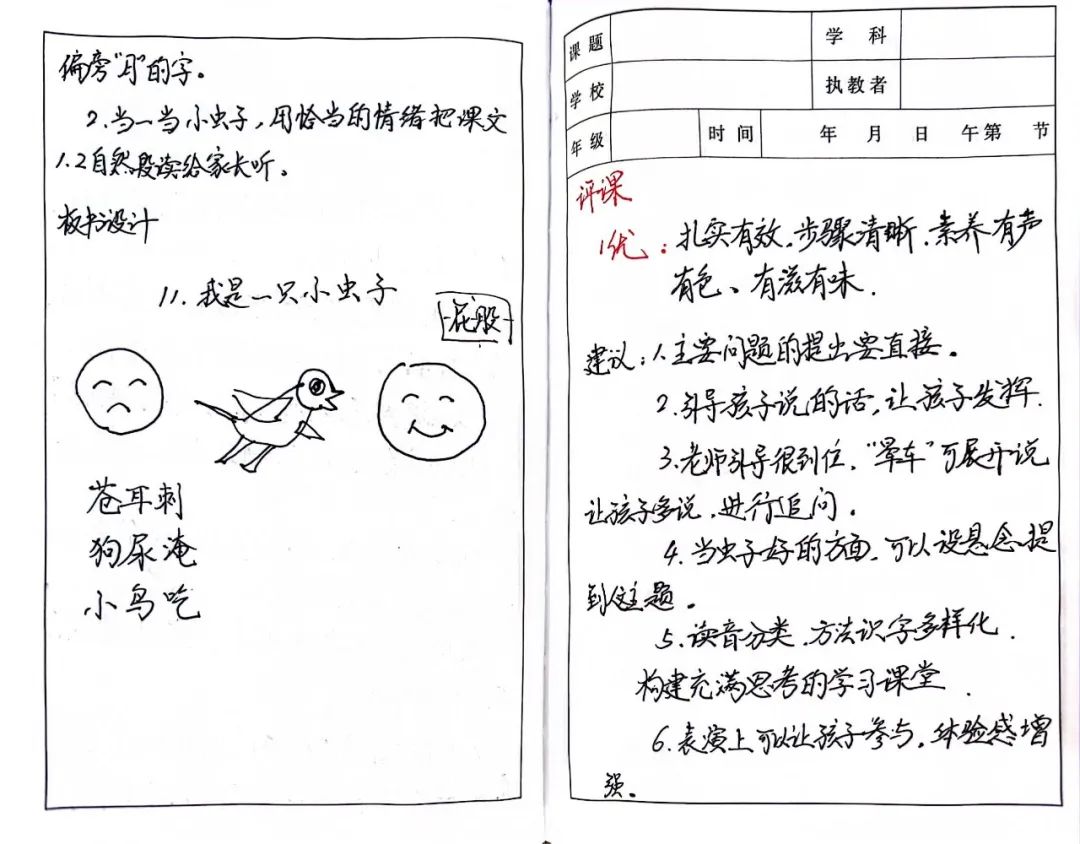 偏旁“月”的字。
2.当一当小虫子，用恰当的情绪把课文
1.2自然段读给家长听。
板书设计
11.我是一只小虫子
屁股
苍耳刺
狗尿淹
小鸟吃
课题
学科
学校
执教者
年级
时间
年 月 日 午第 节
评课
1优：扎实有效、步骤清晰、素养有声
有色、有滋有味.
建议：1.主要问题的提出要直接。
2.引导孩子说的话，让孩子发挥.
3.老师引导很到位，“晕车”可展开说
让孩子多说，进行追问。
4.当虫子好的方面，可以设悬念提
到主题。
5.读音分类、方法识字多样化.
构建充满思考的学习课堂.
6.表演上可以让孩子参与，体验感增
强。